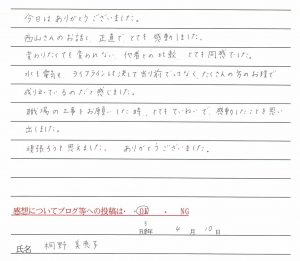 今日はありがとうございました。
西山さんのお話し、正直でとても感動しました。
変わりたくても変われない、他者との比較、とても同感でした。
水も電気も、ライフラインは決して当り前ではなく、たくさんの方のお陰で
成り立っているのだと感じました。
職場の工事をお願いした時、とてもていねいで、感動したことを思い
出しました。
頑張ろうと思えました。 ありがとうございました。
感想についてブログ等への投稿は・ OK ・ NG
4 月 10 日
氏名 桐野